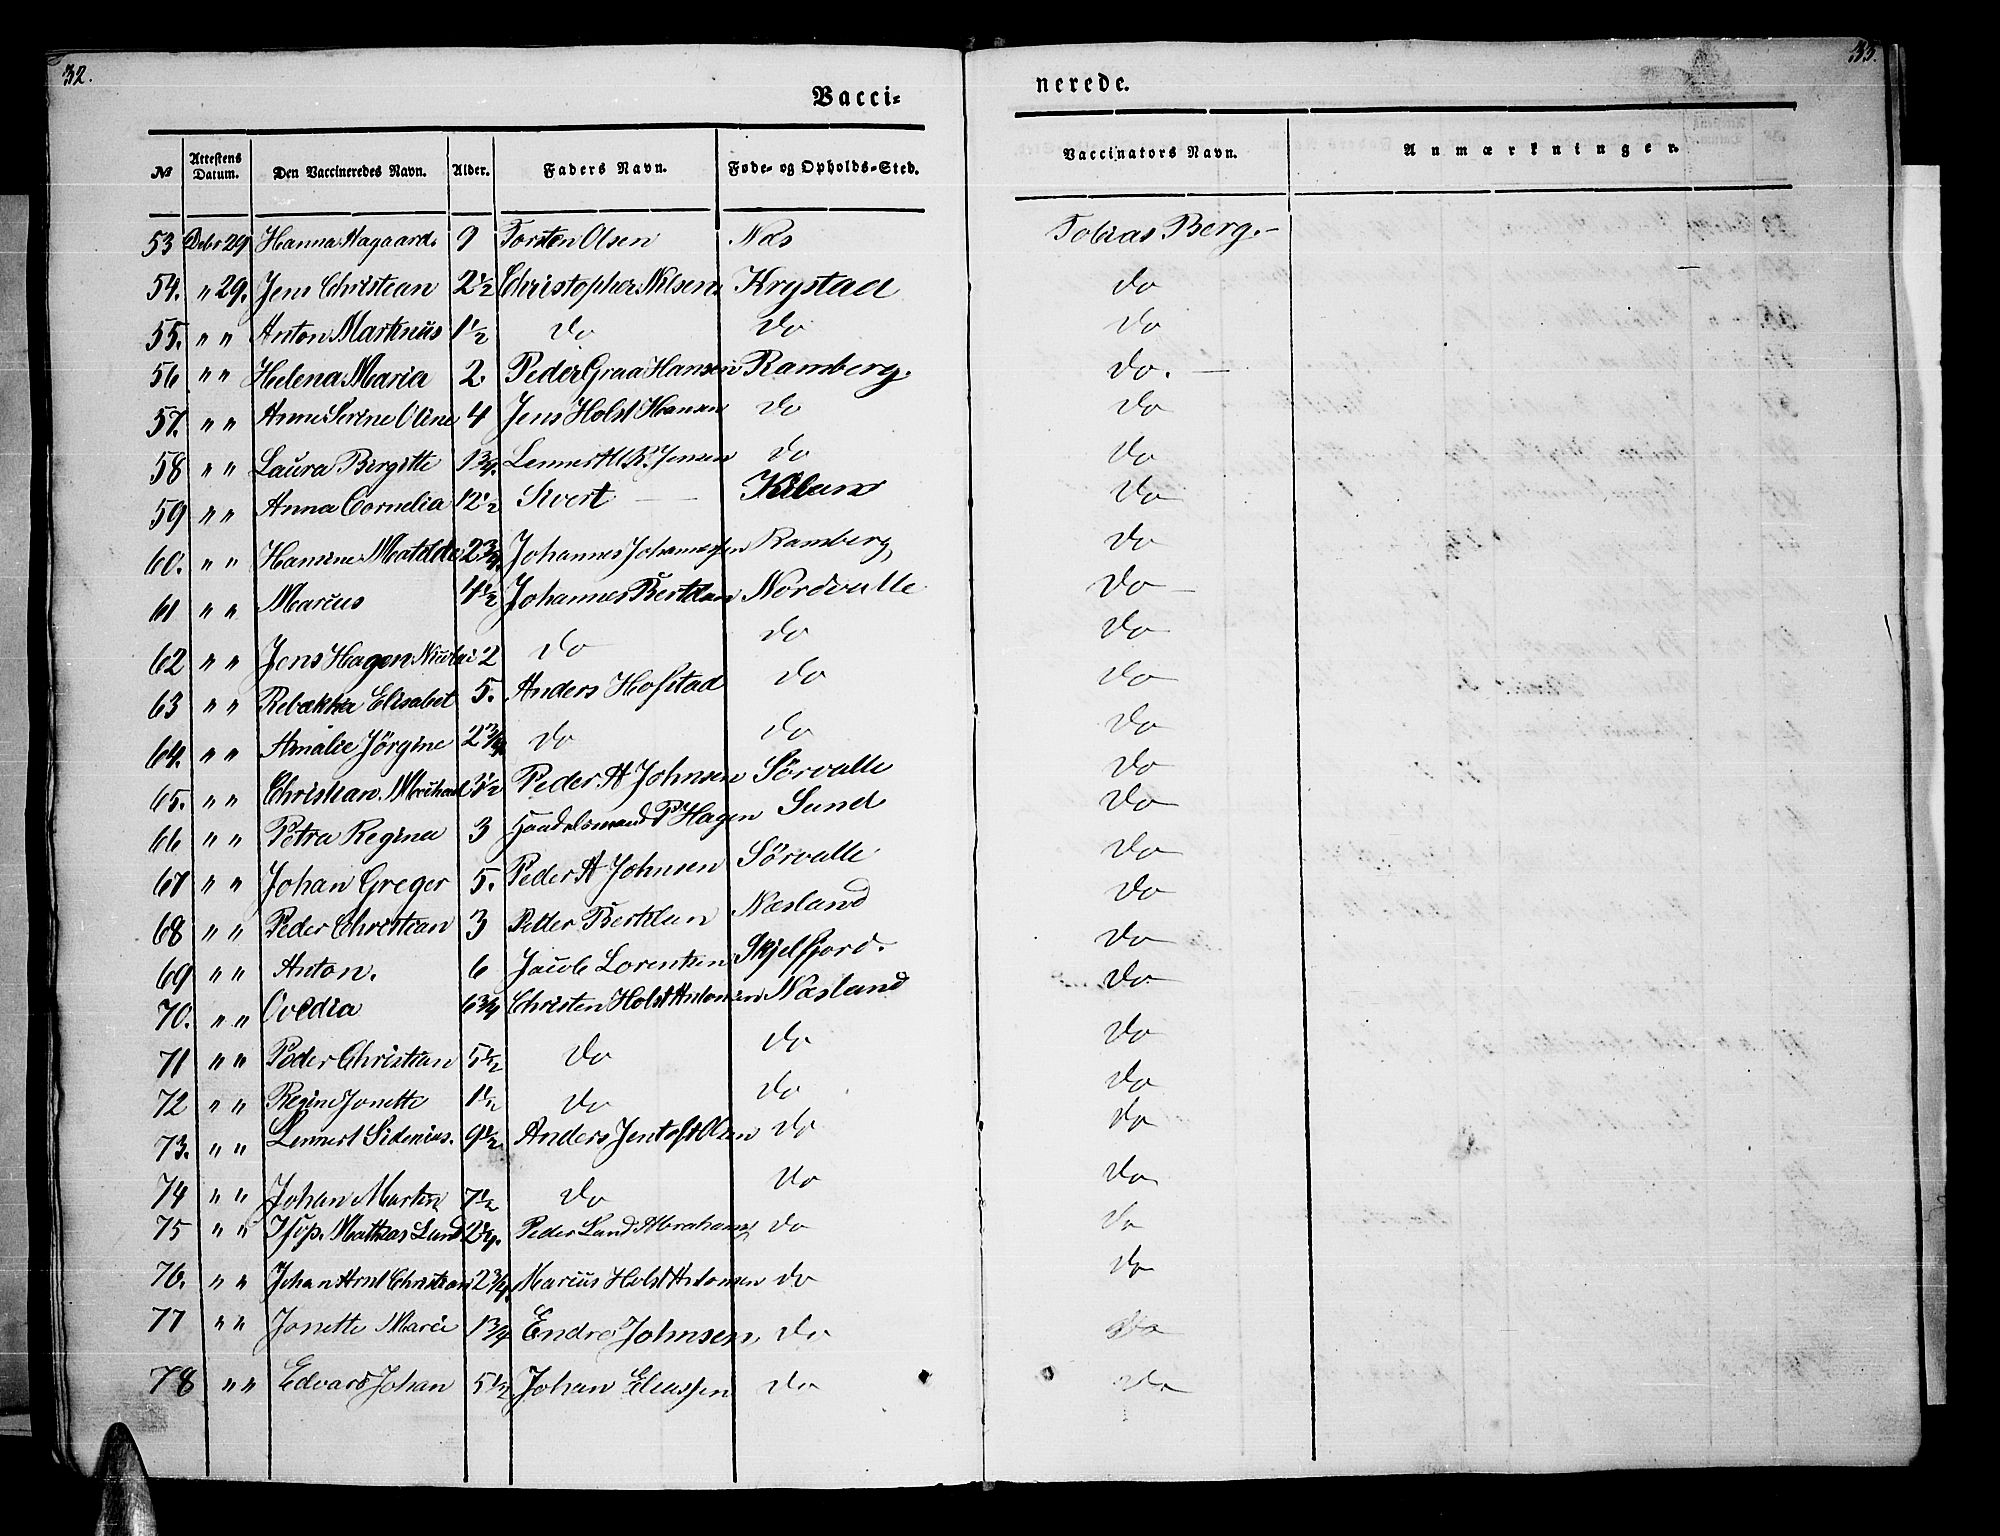 32. 33.
Vacci= nerede.
No Attestens Datum. Den Vaccineredes Navn. Alder. Faders Navn. Føde- og Opholds-Sted. Vaccinators Navn. Anmærkninger.
53 Decbr 29 Hanna Aagaard 9 Torsten Olsen Næs Tobias Berg.
54. " 29. Jens Christian 2 1/2 Christopher Nilsen Krystad do
55. " " Anton Martinus 1 1/2 do do do
56 " " Helena Maria 2. Peder Graa Hansen Ramberg. do.
57. " " Anne Serine Oline 4 Jens Holst Hansen do do
58 " " Laura Birgitte 1 3/4. Lennert Jensen do do
59 " " Anna Cornelia 12 1/2 Sivert — do
60. " " Hansine Matilde 2 3/4. Johannes Johannessen Ramberg do
61 " " Marius 4 1/2 Johannes Bertelsen Nordvalle do
62 " " Jens Hagen Nicolai 2 do do do
63 " " Rebækka Elisabet 5. Anders Hofstad do do
64. " " Amalie Jörgine 2 3/4 do do do
65. " " Christian Michael 3 1/2 Peder A Johnsen Sörvalle do
66 " " Petra Regina 3 Handelsmand P Hagen Sund do
67 " " Johan Greger 5. Peder A Johnsen Sörvalle do
68 " " Peder Christian 3 Petter Bertelsen Næsland do
69 " " Anton. 6 Jacob Lorentsen Skjelfjord. do
70. " " Ovedia 6 3/4 Christen Holst Antonsen Næsland do
71 " " Peder Christian 5 1/2 do do do
72 " " Regine Jonette 1 1/2 do do do
73. " " Lennert Sidenius. 9 1/2. Anders Jentoft Olsen do do
74 " " Johan Martin 7 1/2 do do do
75 " " Mathias Lund Peder Lund Abrahams do do
76. " " Johan Arnt Christian 2 3/4. Marius Holst Antonsen do do
77 " " Jonette Marie 1 3/4 Endre Johnsen do do
78 " " Edvard Johan 5 1/2 Johan Eliassen do do